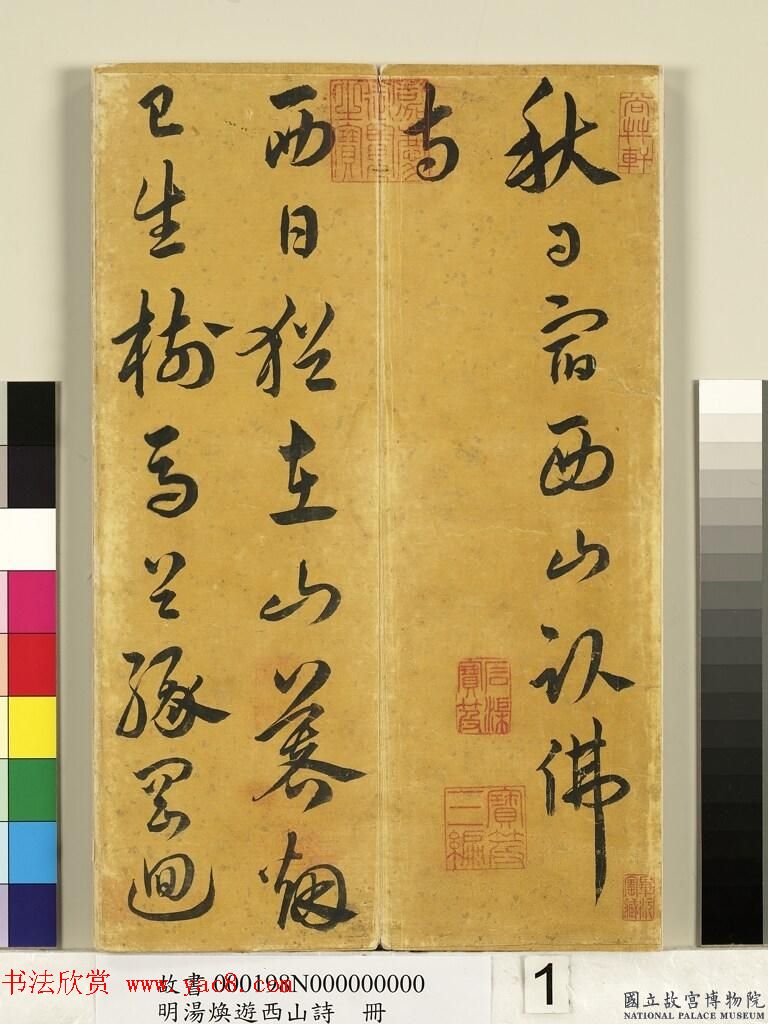 秋日宿西山臥佛
寺
西日猶在山暮烟
已生樹馬首緣岡迴
嘉慶御覽之寶
石渠寶笈
寶笈三編
书法欣赏 www.yac8.com
故書 000198N000000000
明湯煥遊西山詩 冊
1
國立故宮博物院
NATIONAL PALACE MUSEUM